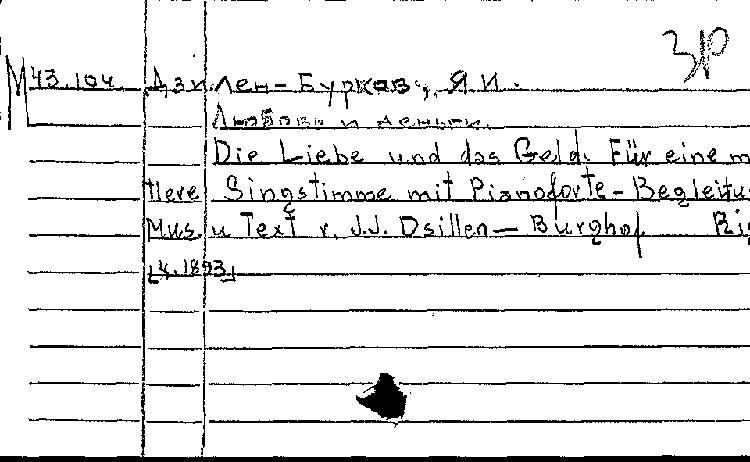 ЗР
М 43.104 Дзилен-Буркав, Я.И.
Любовь и деньги.
Die Liebe und das Geld. Für eine m
tlere Singstimme mit Pianoforte-Begleitu
Mus. u Text v. J.J. Dsillen-Burghof Rig
[4.1893]